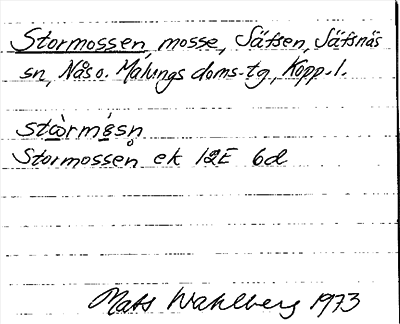 Stormossen, mosse, Säfsen, Säfsnäs
sn, Nås o. Malungs doms.tg, Kopp. l.
Stormossen ek 12E 6d
Mats Wahlberg 1973